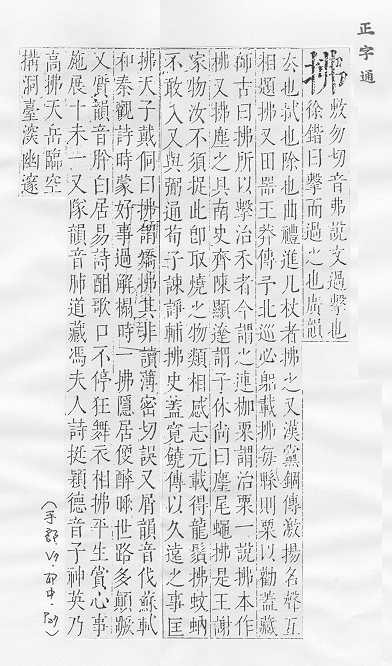 正字通
拂
敷勿切音弗說文過擊也
徐鍇曰擊而過之也廣韻
去也拭也除也曲禮進几杖者拂之又漢黨錮傳激揚名聲互
相題拂又田器王莽傳予北巡必躬載拂每縣則粟以勸蓋藏
師古曰拂所以擊治禾者今謂之連枷粟謂治粟一說拂本作
柫又拂塵之具南史齊陳顯達謂子休尚曰麈尾蠅拂是王謝
家物汝不須捉此卽取燒之物類相感志元載得龍鬚拂蚊蚋
不敢入又與弼通荀子諫諍輔拂史蓋寬饒傳以久遠之事匡
拂天子戴侗曰拂謂矯拂其非讀薄密切誤又屑韻音伐蘇軾
和秦觀詩時蒙好事過解榻時一拂隱居僾醉呼世路多顛蹶
又質韻音肸白居易詩酣歌口不停狂舞衣相拂平生賞心事
施展十未一又隊韻音肺道藏馮夫人詩挺穎德音子神英乃
高拂天岳臨空
構洞臺深幽邃
(手部.V9.卯中.P29)